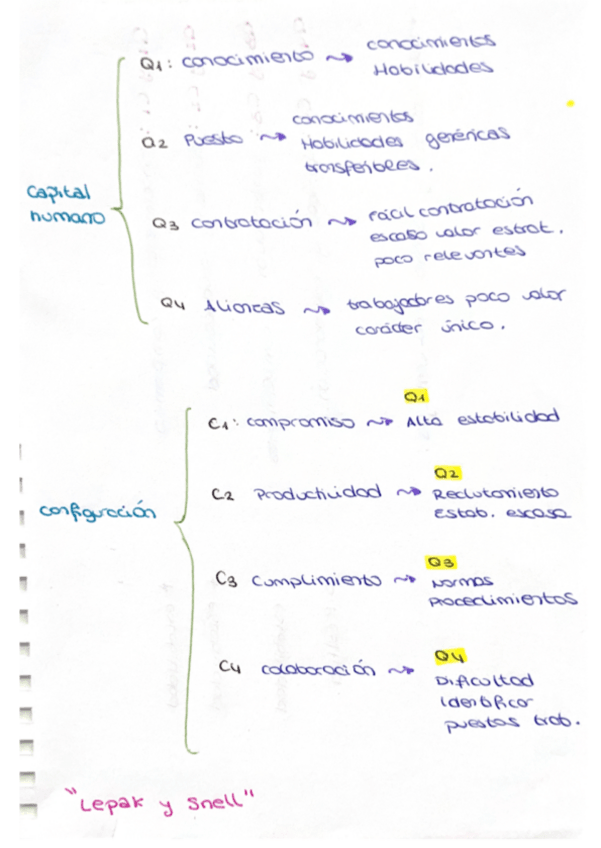 Q1: conocimiento ~> conocimientos
Habilidades
Q2 Puesto ~> conocimientos
Habilidades genéricas
transferibles.
Capital
humano
Q3 contratación ~> fácil contratación
escaso valor estrat.
poco relevantes
Q4 Alianzas ~> trabajadores poco valor
carácter único.
Q1
C1: compromiso ~> Alta estabilidad
Q2
C2 Productividad ~> Reclutamiento
Estab. escasa
configuración
Q3
C3 Cumplimiento ~> Normas
Procedimientos
Q4
C4 colaboración ~> Dificultad
identificar
puestos trab.
"Lepak y Snell"